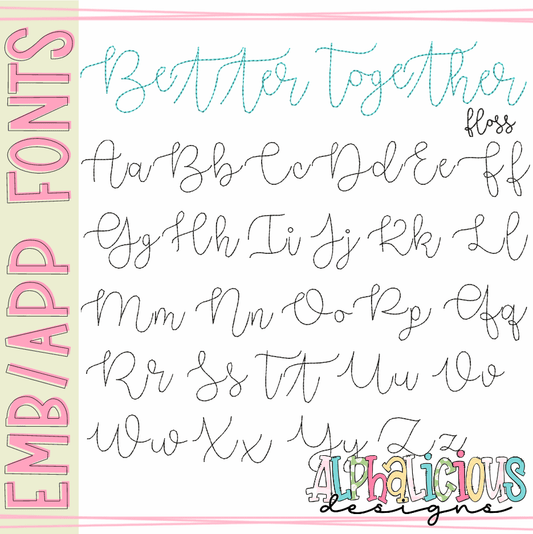 EMB/APP FONTS
Better Together
floss
Aa Bb Cc Dd Ee Ff
Gg Hh Ii Jj Kk Ll
Mm Nn Oo Pp Qq
Rr Ss Tt Uu Vv
Ww Xx Yy Zz
Alphalicious
designs